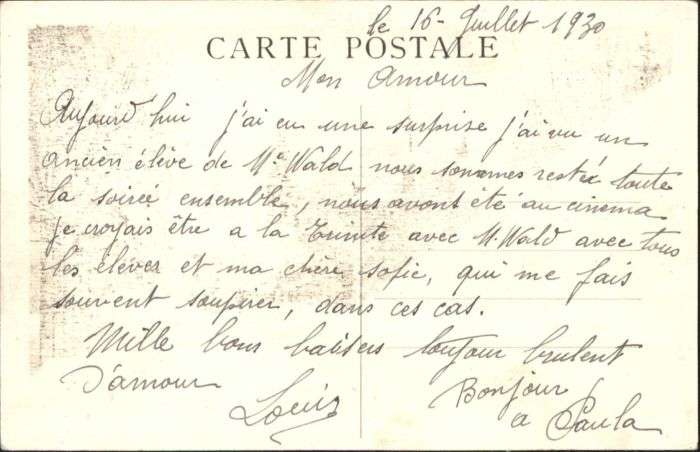 le 16 - Juillet 1930
CARTE POSTALE
Mon Amour
Aujourd'hui j'ai eu une surprise j'ai vu un
ancien élève de Mr Wald nous sommes resté toute
la soireé ensemble, nous avont été au cinema
je croyais être a la Trinité avec M. Wald avec tous
les élever et ma chère Sofie, qui me fais
souvent soupirer, dans ces cas.
Mille bons baisers toujour brulent
D'amour
Louis
Bonjour
a Paula